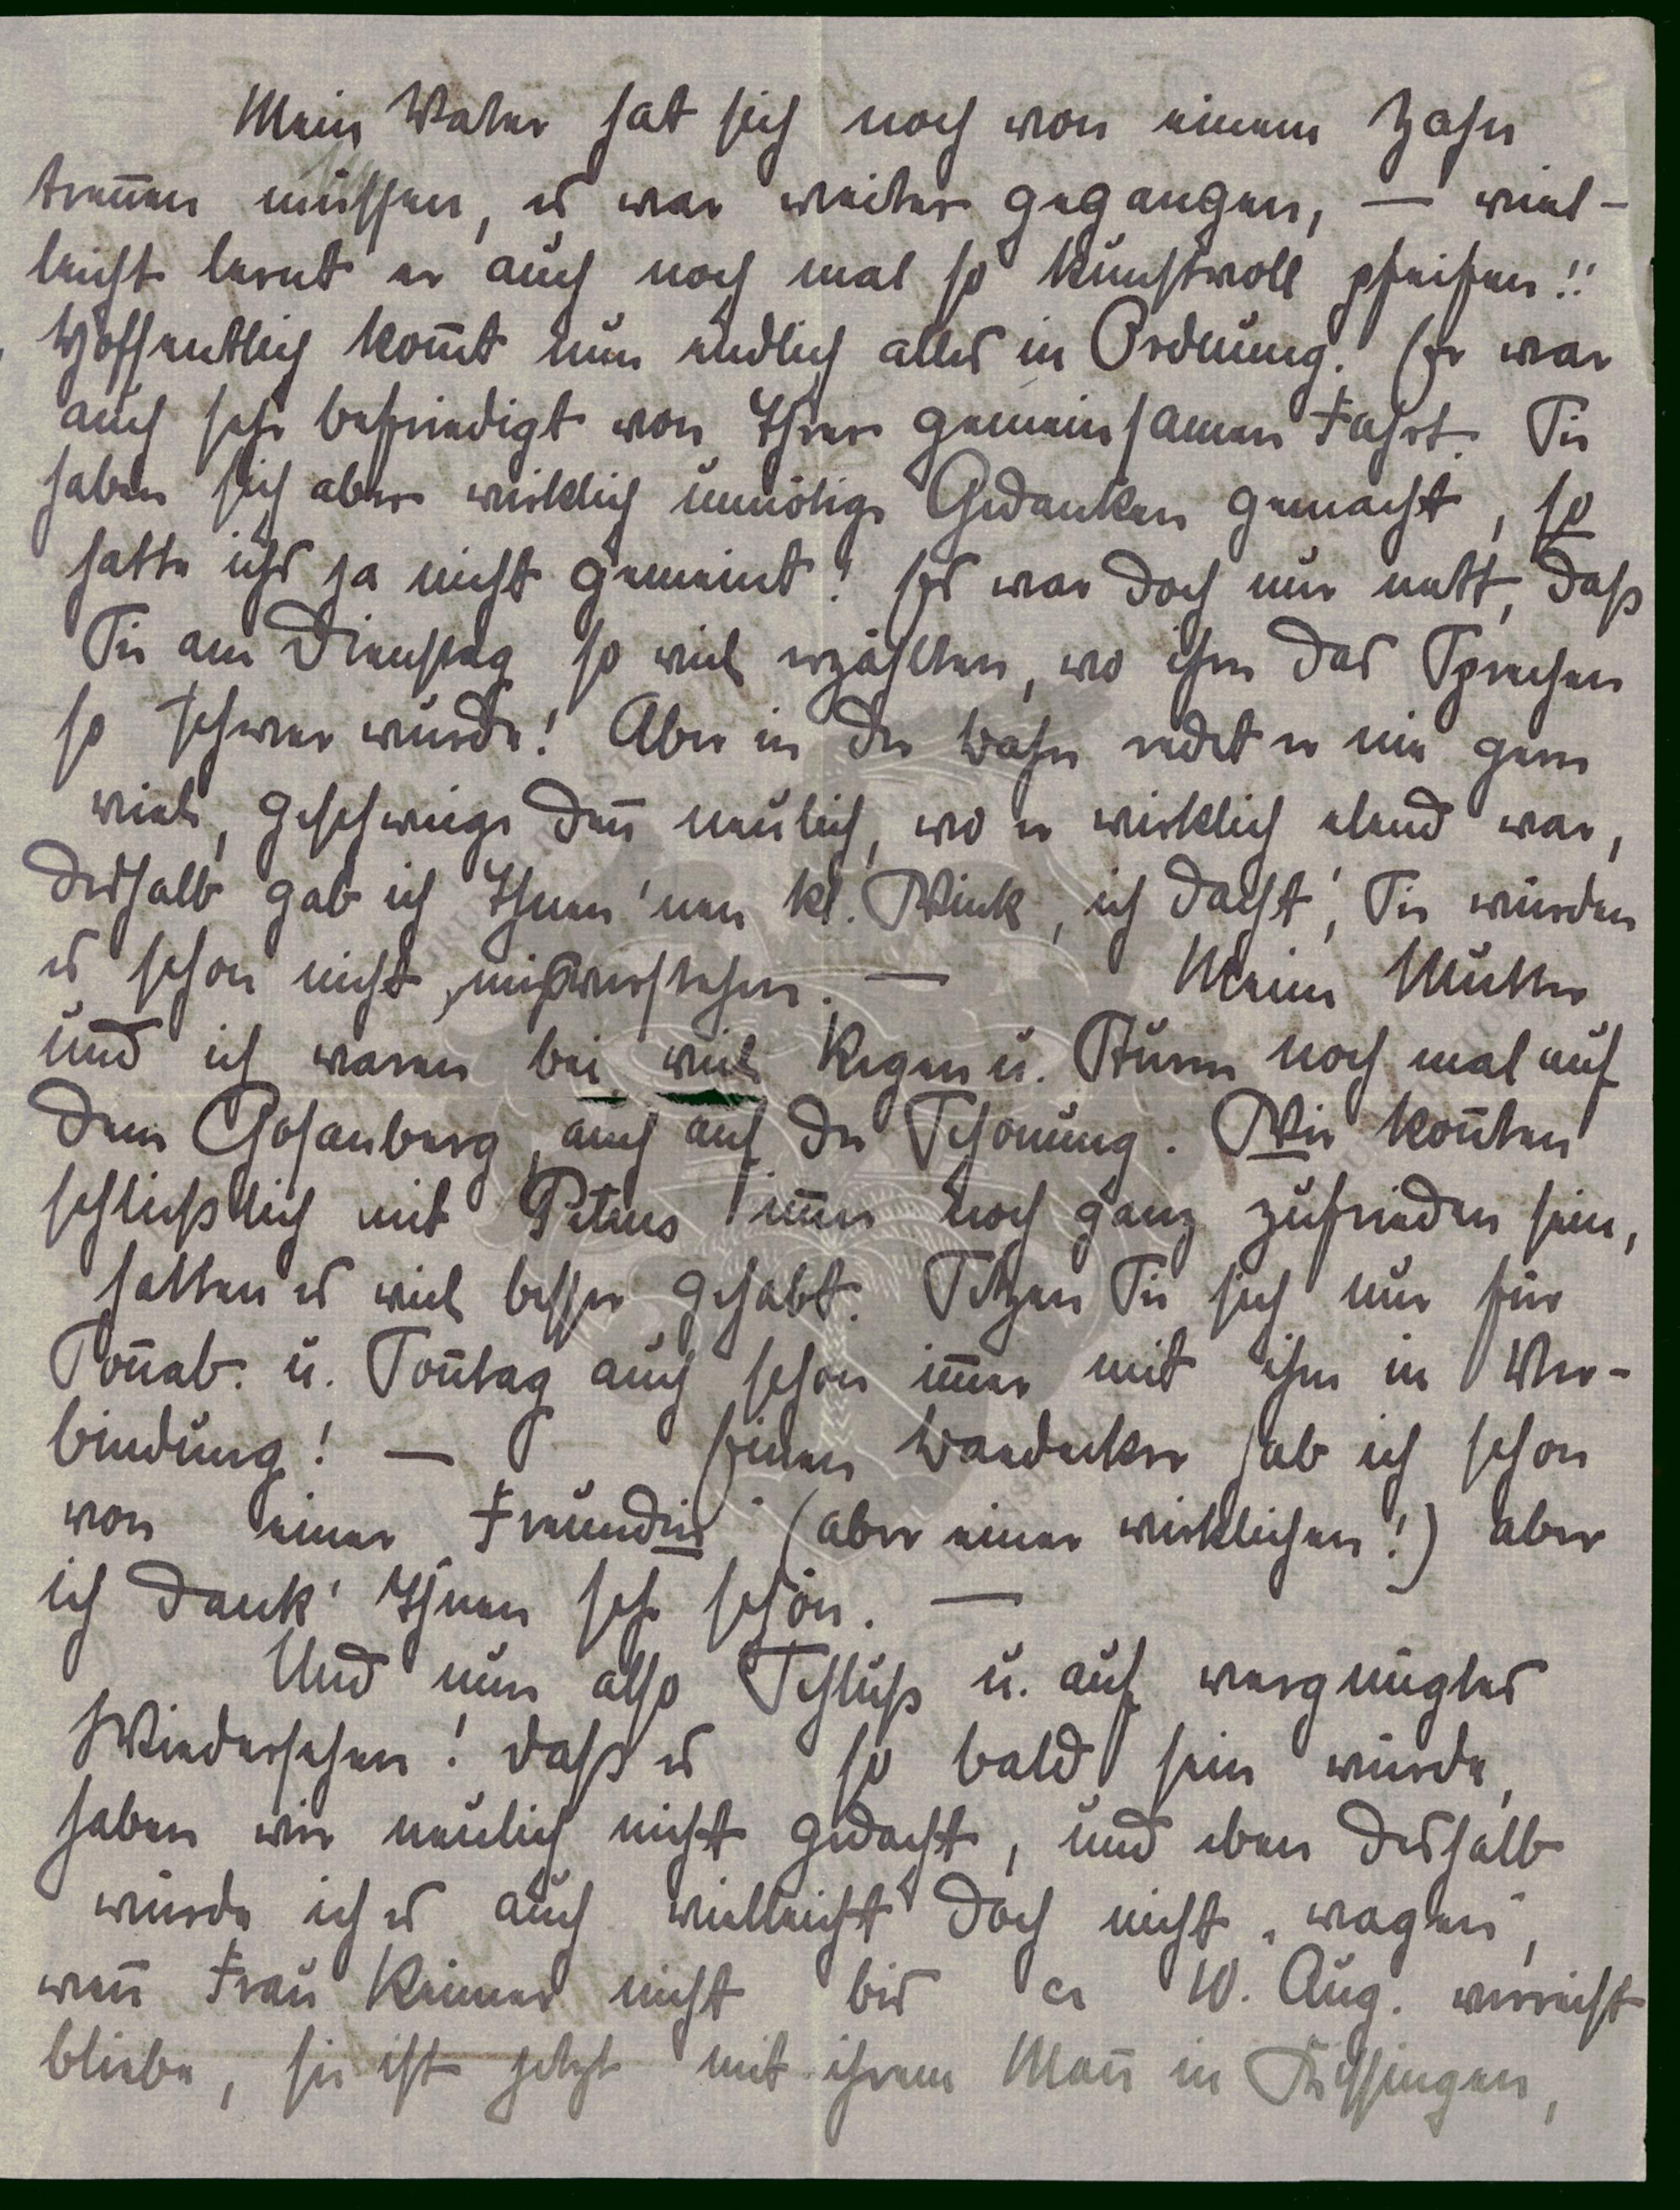 Mein Vater hat sich noch von einem Zahn
treñen müssen, es war weiter gegangen, — viel-
leicht lernt er auch noch mal so kunstvoll pfeifen!!
Hoffentlich kom̄t nun endlich alles in Ordnung. Er war
auch sehr befriedigt von Ihrer gemeinsamen Fahrt. Sie
haben sich aber wirklich unnötige Gedanken gemacht, so
hatte ichs ja nicht gemeint! Es war doch nur nett, daß
Sie am Dienstag so viel erzählten, wo ihm das Sprechen
so schwer wurde! Aber in der Bahn redet er nie gern
viel, geschweige deñ neulich, wo er wirklich elend war,
deshalb gab ich Ihnen 'nen kl. Wink, ich dacht', Sie würden
es schon nicht „mißverstehen. — Meine Mutter
und ich waren bei viel Regen u. Sturm noch mal auf
dem auch auf der Schonung. Wir koñten
schließlich mit Petrus im̄er noch ganz zufrieden sein,
hatten es viel besser gehabt. Setzen Sie sich nur für
Soñab. u. Soñtag auch schon im̄er mit ihm in Ver-
bindung! — Einen Baedecker hab ich schon
von einer Freundin (aber einer wirklichen!) aber
ich dank' Ihnen sehr schön. —
Und nun also Schluß u. auf vergnügtes
Wiedersehen! Daß es so bald sein würde,
haben wir neulich nicht gedacht, und eben deshalb
würde ich es auch vielleicht doch nicht „wagen",
weñ Frau Reimer nicht bis ca 10. Aug. verreist
bliebe, sie ist jetzt mit ihrem Mañ in Kissingen,